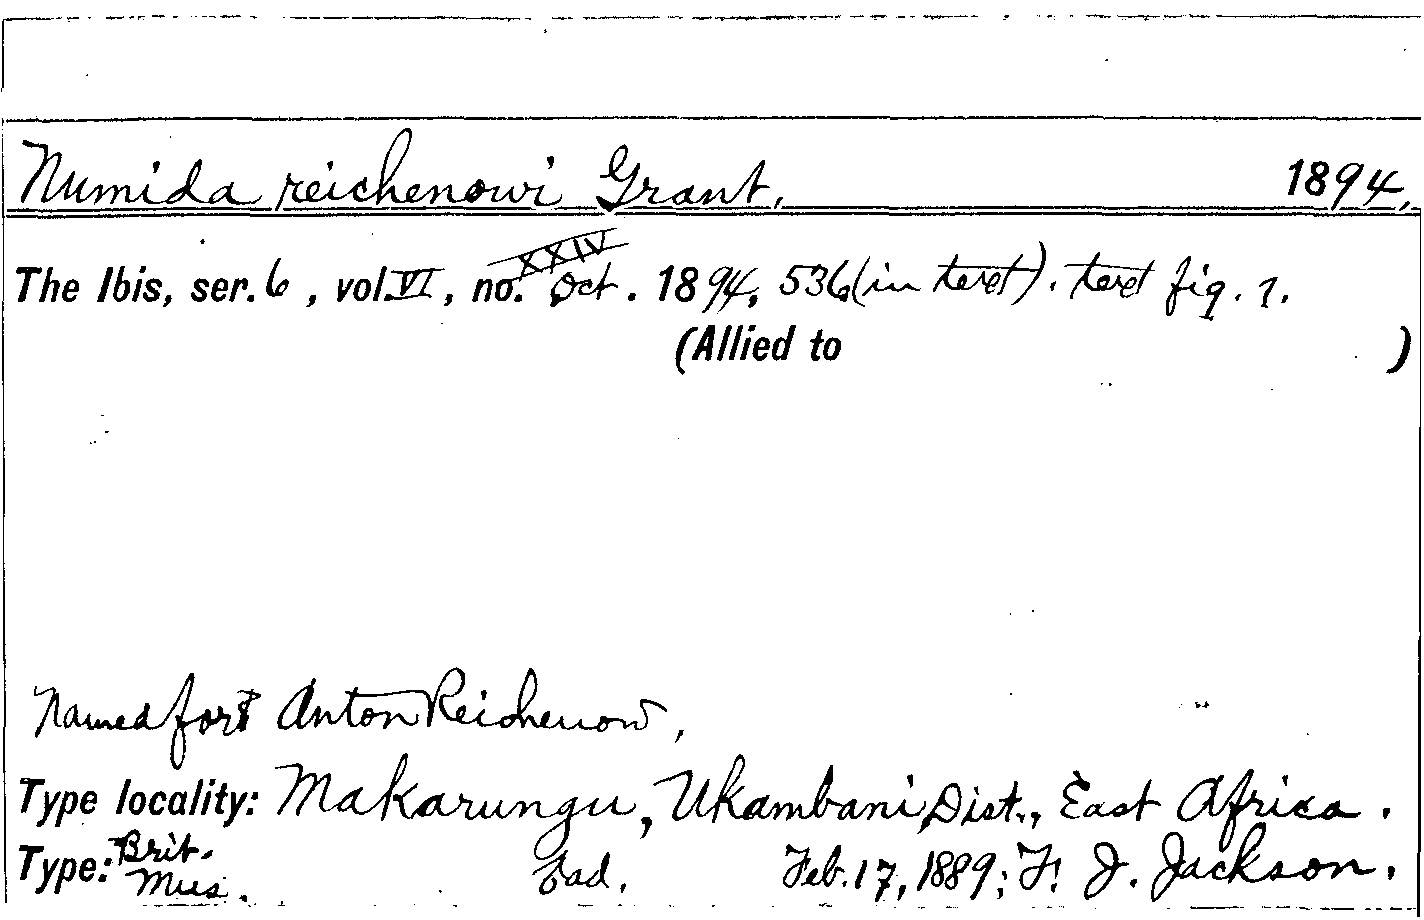 Numida reichenowi Grant, 1894,
XXIV
The Ibis, ser. 6, vol. VI, no. Oct. 1894, 536 (in text). text fig. 1.
(Allied to )
Named for Anton Reichenow,
Type locality: Makarungu, Ukambani Dist., East Africa.
Type: Brit. Mus. Ead. Feb. 17, 1889; F. J. Jackson.